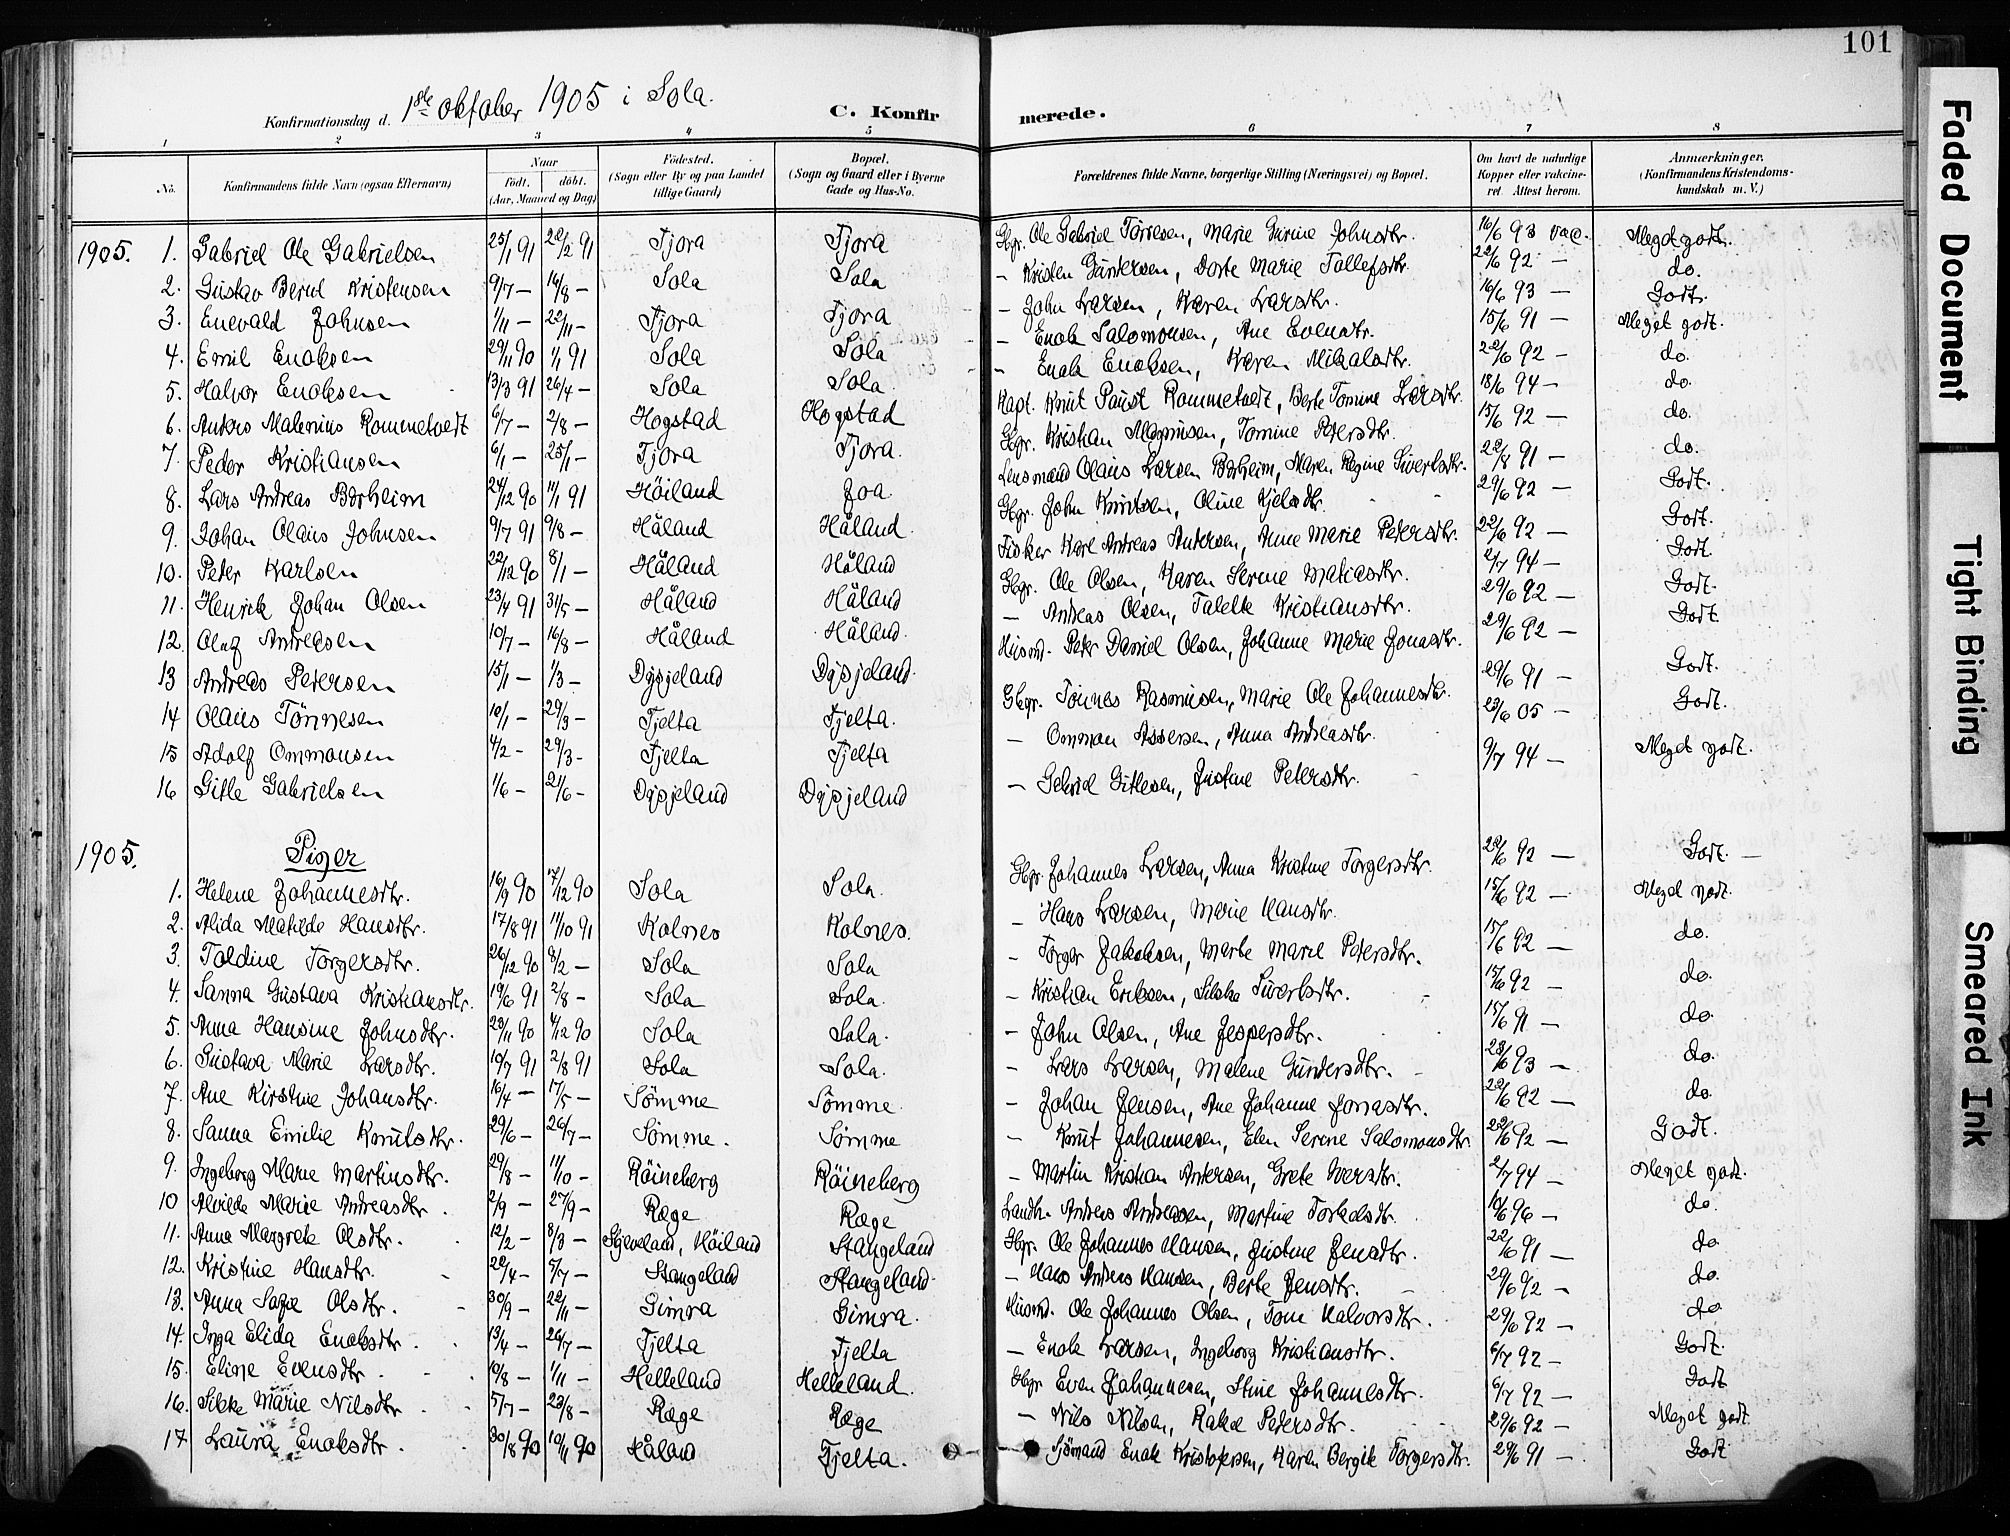 101
Konfirmationsdag d. 1ste oktober 1905 i Sola.
C. Konfirmerede.
1 2 3 4 5 6 7 8
No. Konfirmandens fulde Navn (ogsaa Efternavn) Naar født. døbt. (Aar, Maaned og Dag) Fødested. (Sogn eller By og paa Landet tillige Gaard) Bopæl. (Sogn og Gaard eller i Byerne Gade og Hus-No. Forældrenes fulde Navne, borgerlige Stilling (Næringsvei) og Bopæl. Om havt de naturlige Kopper eller vakcineret. Attest herom. Anmærkninger. (Konfirmandens Kristendomskundskab m. V.)
1905. 1. Gabriel Ole Gabrielsen 25/1 91 22/2 91 Tjora Tjora Gbgr. Ole Gabriel Tørresen, Marie Gurine Johnsdtr. 16/6 93 vac. Meget godt.
2. Gustav Bernt Kristensen 9/7 — 16/8 — Sola Sola — Kristen Guntersen, Dorte Marie Tollefsdtr. 22/6 92 — do.
3. Enevald Johnsen 1/11 — 22/11 — Tjora Tjora — John Larsen, Karen Larsdtr. 16/6 93 — Godt.
4. Emil Enoksen 29/11 90 1/1 91 Sola Sola — Enok Salomonsen, Ane 15/6 91 — Meget godt.
5. Halvor Enoksen 13/3 91 26/4 — Sola Sola. — Enok Enoksen, Karen Mikalsdtr. 22/6 92 — do.
6. Anders Malenius Rommetvedt 6/7 — 2/8 — Hogstad Hogstad Kapt. Knut Paust Rommetvedt, Berte Tomine Larsdtr. 18/6 94 — do.
7. Peder Kristiansen 6/1 — 25/1 — Tjora Tjora. Gbgr. Kristian Magnusen, Tomine Petersdtr. 15/6 92 — do.
8. Lars Andreas Børheim 24/12 90 11/1 91 Höiland Joa Lensmand Olaus Larsen Børheim, Maren Regine Sivertsdtr. 22/8 91 — do.
9. Johan Olaus Johnsen 9/7 91 9/8 — Håland Håland. Gbgr. John Knutsen, Oline Kjelsdtr. 29/6 92 — Godt.
10. Peter Karlsen 22/12 90 8/1 — Håland Håland Fisker Karl Andreas Antersen, Anne Marie Petersdtr. 22/6 92 — Godt.
11. Henrik Johan Olsen 23/4 91 31/5 — Håland Håland Gbgr. Ole Olsen, Karen Serine Matiasdtr. 2/7 94 — Godt.
12. Olaf Andreasen 10/7 — 16/8 — Håland Håland. — Andreas Olsen, Talette Kristiansdtr. 29/6 92 — Godt.
13 Andreas Petersen 15/1 — 1/3 — Dysjeland Dysjeland. Husmd. Peter Daniel Olsen, Johanne Marie Jonasdtr. 29/6 92 — Godt
14 Olaus Tönnesen 10/1 — 29/3 — Tjelta Tjelta. Gbgr. Tönnes Rasmusen, Marie Ole Johannesdtr. 29/6 91 — Godt.
15 Adolf Ommonsen 4/2 — 29/3 — Tjelta Tjelta — Ommon Assersen, Anna Andreasdtr. 23/6 05 — Godt.
16 Gitle Gabrielsen 1/6 — 21/6 — Dysjeland Dysjeland — Gabriel Gitlesen, Justine Petersdtr. 9/7 94 — Meget godt.
1905. Piger
1. Helene Johannesdtr. 16/9 90 7/12 90 Sola Sola. Gbgr. Johannes Larsen, Anna Kristine Torgersdtr. 22/6 92 — Godt. —
2. Alida Matilde Hansdtr. 17/8 91 11/10 91 Kolnes Kolnes. — Hans Larsen, Marie Hansdtr. 15/6 92 — Meget godt.
3. Toldine Torgersdtr. 26/12 90 8/2 — Sola Sola — Torger Jakobsen, Marte Marie Petersdtr. 15/6 92 — do.
4. Sanna Gustava Kristiansdtr. 19/6 91 2/8 — Sola Sola. — Kristian Eriksen, Silske Sivertsdtr. 15/6 92 — do.
5. Anna Hansine Johnsdtr. 23/11 90 4/12 90 Sola Sola. — John Olsen, Ane Jespersdtr. 15/6 91 — do.
6. Gustava Marie Larsdtr. 10/7 91 2/8 91 Sola Sola. — Lars Larsen, Malene Gundersdtr. 28/6 93 — do.
7. Ane Kirstine Johansdtr. 16/4 — 17/5 — Sömme Sömme. — Johan Jensen, Ane Johanne Jonasdtr. 22/6 92 — do.
8. Sanna Emilie Knutsdtr. 29/6 — 26/7 — Sömme. Sömme — Knut Johannesen, Elen Serene Salomonsdtr. 22/6 92 — Godt.
9. Ingeborg Marie Martinsdtr. 29/8 — 11/10 — Röineberg Röineberg — Martin Kristian Antersen, Grete Iversdtr. 2/7 94 — Meget godt.
10 Alvilde Marie Andreasdtr. 2/9 — 27/9 — Ræge Ræge Landh. Andreas Andreasen, Martine Torkelsdtr. 10/6 96 — do.
11. Anna Margrete Olsdtr. 12/2 — 8/3 — Skjeveland, Höiland Stangeland Gbgr. Ole Johannes Hansen, Justine Jensdtr. 22/6 91 — do
12. Kristine Hansdtr. 20/4 — 5/7 — Stangeland Stangeland. — Hans Andreas Hansen, Berte Jensdtr. 29/6 92 — do.
13. Anna Olsdtr. 30/9 — 22/11 — Gimra Gimra. Husmd. Ole Johannes Olsen, Tone Halvorsdtr. 29/6 92 — do
14. Inga Elida Enoksdtr. 13/4 — 26/7 — Tjelta Tjelta — Enok Larsen, Ingeborg Kristiansdtr. 6/7 92 — Godt.
15. Eline Evensdtr. 10/8 — 1/11 — Helleland Helleland. Gbgr Even Johannesen, Stine Johannesdtr. 6/7 92 — Godt
16. Silke Marie Nilsdtr. 5/7 — 23/8 — Ræge Ræge — Nils Nilsen, Rakel Petersdtr. 29/6 92 — Meget godt.
17 Laura Enoksdtr. 30/8 90 19/11 90 Håland Tjelta. — Sjömand Enok Kristofersen, Karen Bergite Torgersdtr. 29/6 91 — Godt
Faded Document
Tight Binding
Smeared Ink